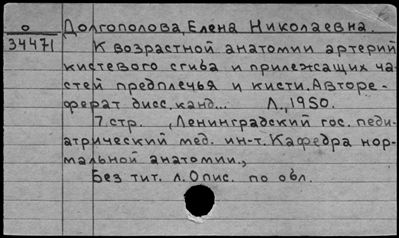 о
34471
Долгополова, Елена Николаевна.
К возрастной анатомии артерий
кистевого сгиба и прилежащих ча-
стей предплечья и кисти. Авторе-
ферат дисс. канд... Л., 1950.
7. стр. , Ленинградский гос. педи-
атрический мед. ин-т. Кафедра нор-
мальной анатомии.,
Без тит. л. Опис. по обл.